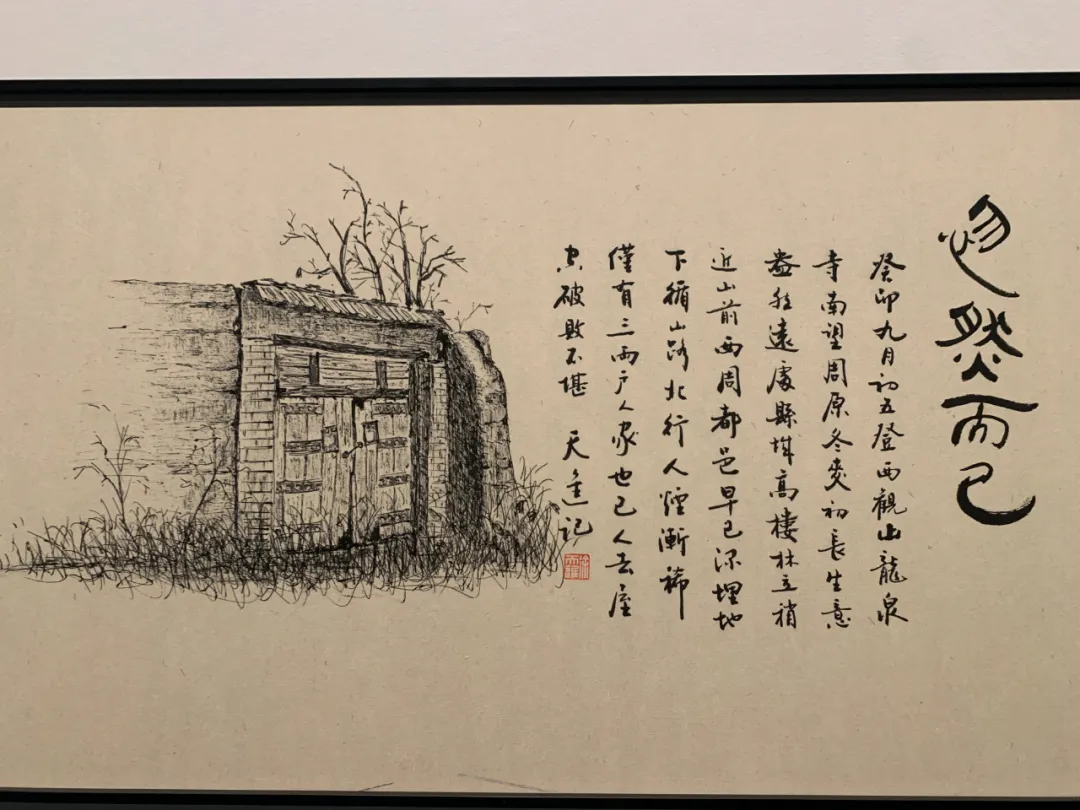 忽然而已
癸卯九月初五登西觀山龍泉
寺南望周原冬麦初長生意
盎然遠處縣城高樓林立稍
近山前西周都邑早已深埋地
下循山路北行人煙漸稀
僅有三兩户人家也已人去屋
空破敗不堪 天 記